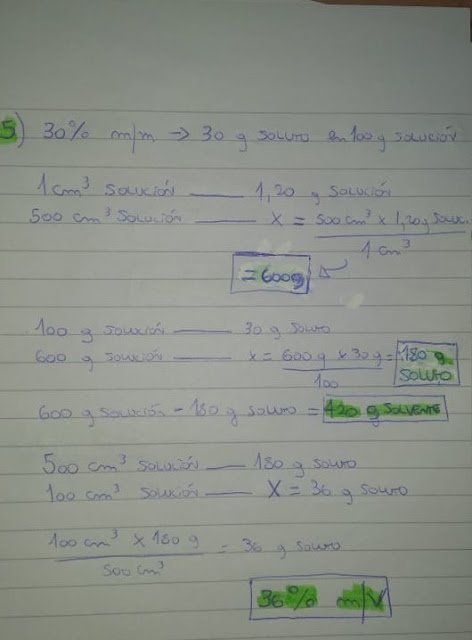 5) 30% m/m → 30 g soluto en 100g solución
1 cm³ solución —— 1,20 g solución
500 cm³ solución —— X = 500 cm³ x 1,20g soluc.
1 cm³
= 600g
100 g solución —— 30 g soluto
600 g solución —— x = 600 g x 30 g = 180 g
100 soluto
600 g solución - 180 g soluto = 420 g solvente
500 cm³ solución —— 180 g soluto
100 cm³ solución —— X = 36 g soluto
100 cm³ x 180 g = 36 g soluto
500 cm³
36% m/V